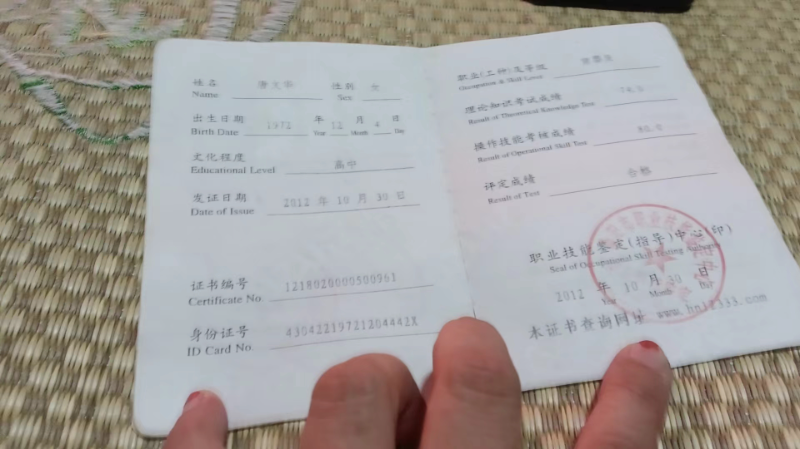 姓名 性别 女
Name Sex
出生日期 1972 年 12 月 4 日
Birth Date Year Month Day
文化程度 高中
Educational Level
发证日期 2012 年 10 月 30 日
Date of Issue
证书编号 1218020000500961
Certificate No.
身份证号 43042219721204442X
ID Card No.
职业(工种)及等级
Occupation & Skill Level
理论知识考试成绩
Result of Theoretical Knowledge Test
操作技能考核成绩
Result of Operational Skill Test
评定成绩 合格
Result of Test
职业技能鉴定(指导)中心(印)
Seal of Occupational Skill Testing
2012 年 10 月 30 日
Year Month Day
本证书查询网址 www.hn12333.com